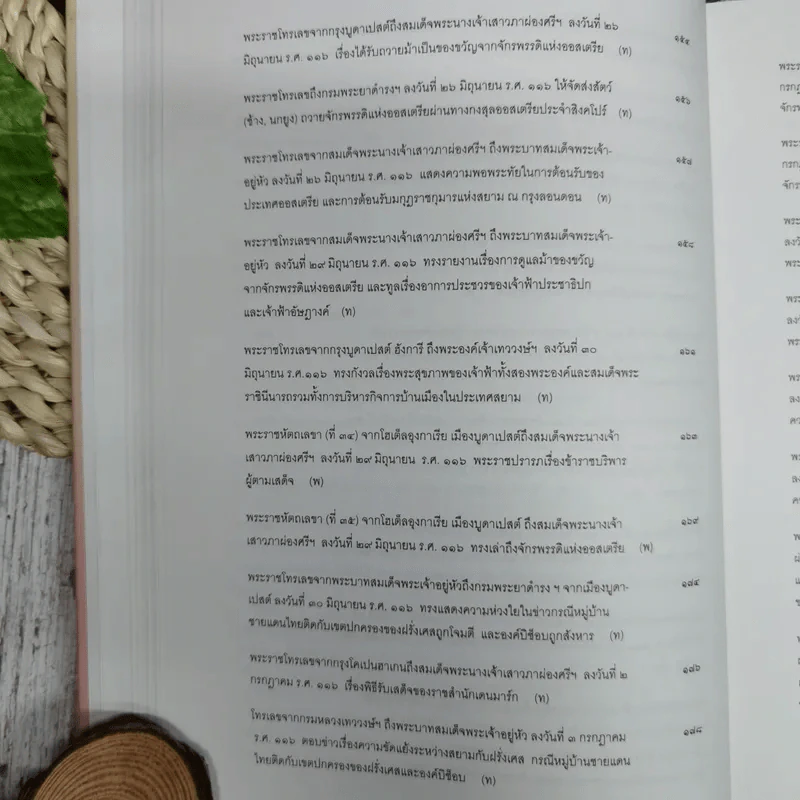 พระราชโทรเลขจากกรุงบูดาเปสต์ถึงสมเด็จพระนางเจ้าเสาวภาผ่องศรีฯ ลงวันที่ ๒๖ ๑๕๔
มิถุนายน ร.ศ. ๑๑๖ เรื่องได้รับถวายม้าเป็นของขวัญจากจักรพรรดิแห่งออสเตรีย (ท)
พระราชโทรเลขถึงกรมพระยาดำรงฯ ลงวันที่ ๒๖ มิถุนายน ร.ศ. ๑๑๖ ให้จัดส่งสัตว์ ๑๕๖
(ช้าง, นกยูง) ถวายจักรพรรดิแห่งออสเตรียผ่านทางกงสุลออสเตรียประจำสิงคโปร์ (ท)
พระราชโทรเลขจากสมเด็จพระนางเจ้าเสาวภาผ่องศรีฯ ถึงพระบาทสมเด็จพระเจ้า- ๑๕๘
อยู่หัว ลงวันที่ ๒๖ มิถุนายน ร.ศ. ๑๑๖ แสดงความพอพระทัยในการต้อนรับของ
ประเทศออสเตรีย และการต้อนรับมกุฎราชกุมารแห่งสยาม ณ กรุงลอนดอน (ท)
พระราชโทรเลขจากสมเด็จพระนางเจ้าเสาวภาผ่องศรีฯ ถึงพระบาทสมเด็จพระเจ้า- ๑๕๘
อยู่หัว ลงวันที่ ๒๙ มิถุนายน ร.ศ. ๑๑๖ ทรงรายงานเรื่องการดูแลม้าของขวัญ
จากจักรพรรดิแห่งออสเตรีย และทูลเรื่องอาการประชวรของเจ้าฟ้าประชาธิปก
และเจ้าฟ้าอัษฎางค์ (ท)
พระราชโทรเลขจากกรุงบูดาเปสต์ ฮังการี ถึงพระองค์เจ้าเทววงษ์ฯ ลงวันที่ ๓๐ ๑๖๑
มิถุนายน ร.ศ.๑๑๖ ทรงกังวลเรื่องพระสุขภาพของเจ้าฟ้าทั้งสองพระองค์และสมเด็จพระ
ราชินีนารถรวมทั้งการบริหารกิจการบ้านเมืองในประเทศสยาม (ท)
พระราชหัตถเลขา (ที่ ๓๔) จากโฮเต็ลอุงกาเรีย เมืองบูดาเปสต์ถึงสมเด็จพระนางเจ้า ๑๖๓
เสาวภาผ่องศรีฯ ลงวันที่ ๒๙ มิถุนายน ร.ศ. ๑๑๖ พระราชปรารภเรื่องข้าราชบริพาร
ผู้ตามเสด็จ (พ)
พระราชหัตถเลขา (ที่ ๓๕) จากโฮเต็ลอุงกาเรีย เมืองบูดาเปสต์ ถึงสมเด็จพระนางเจ้า ๑๖๙
เสาวภาผ่องศรีฯ ลงวันที่ ๒๙ มิถุนายน ร.ศ. ๑๑๖ ทรงเล่าถึงจักรพรรดิแห่งออสเตรีย (พ)
พระราชโทรเลขจากพระบาทสมเด็จพระเจ้าอยู่หัวถึงกรมพระยาดำรง ฯ จากเมืองบูดา- ๑๘๔
เปสต์ ลงวันที่ ๓๐ มิถุนายน ร.ศ. ๑๑๖ ทรงแสดงความห่วงใยในข่าวกรณีหมู่บ้าน
ชายแดนไทยติดกับเขตปกครองของฝรั่งเศสถูกโจมตี และองค์บีช็อบถูกสังหาร (ท)
พระราชโทรเลขจากกรุงโคเปนฮาเกนถึงสมเด็จพระนางเจ้าเสาวภาผ่องศรีฯ ลงวันที่ ๒ ๑๘๖
กรกฎาคม ร.ศ. ๑๑๖ เรื่องพิธีรับเสด็จของราชสำนักเดนมาร์ก (ท)
โทรเลขจากกรมหลวงเทววงษ์ฯ ถึงพระบาทสมเด็จพระเจ้าอยู่หัว ลงวันที่ ๓ กรกฎาคม ๑๘๘
ร.ศ. ๑๑๖ ตอบข่าวเรื่องความขัดแย้งระหว่างสยามกับฝรั่งเศส กรณีหมู่บ้านชายแดน
ไทยติดกับเขตปกครองของฝรั่งเศสและองค์บีช็อบ (ท)